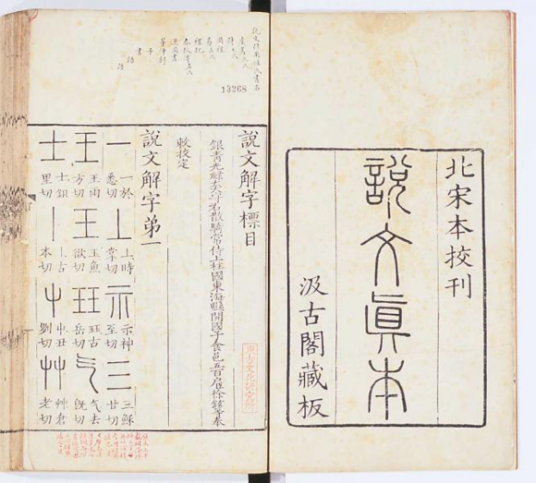 北宋本挍刊
說文眞本
汲古閣藏板
13268
說文解字標目
銀青光祿大夫守右散騎常侍上柱國東海縣開國子食邑五百戶臣徐鉉等奉
敕挍定
說文解字第一
一 一於悉切 丄 丄時掌切 示 示神至切 三 三穌甘切
王 王雨方切 玉 玉魚欲切 玨 玨古岳切 气 气去旣切
士 士鉏里切 丨 丨古本切 屮 屮丑列切 艸 艸倉老切